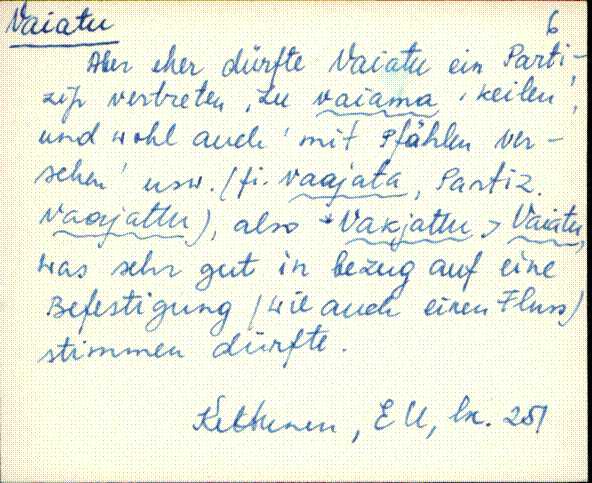 Vaiatu
6
Aber eher dürfte Vaiatu ein Parti-
zip vertreten, zu vaiama 'keilen',
und wohl auch 'mit Pfählen ver-
sehen' usw. (fi. vaajata, Partiz.
vaajattu), also *Vakjattu > Vaiatu,
was sehr gut in bezug auf eine
Befestigung (wie auch einen Fluss)
stimmen dürfte.
Kettunen, EU, lk. 251